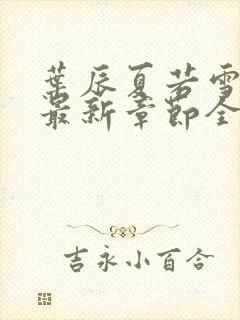 葉辰夏若雪
最新章節全
吉永小百合